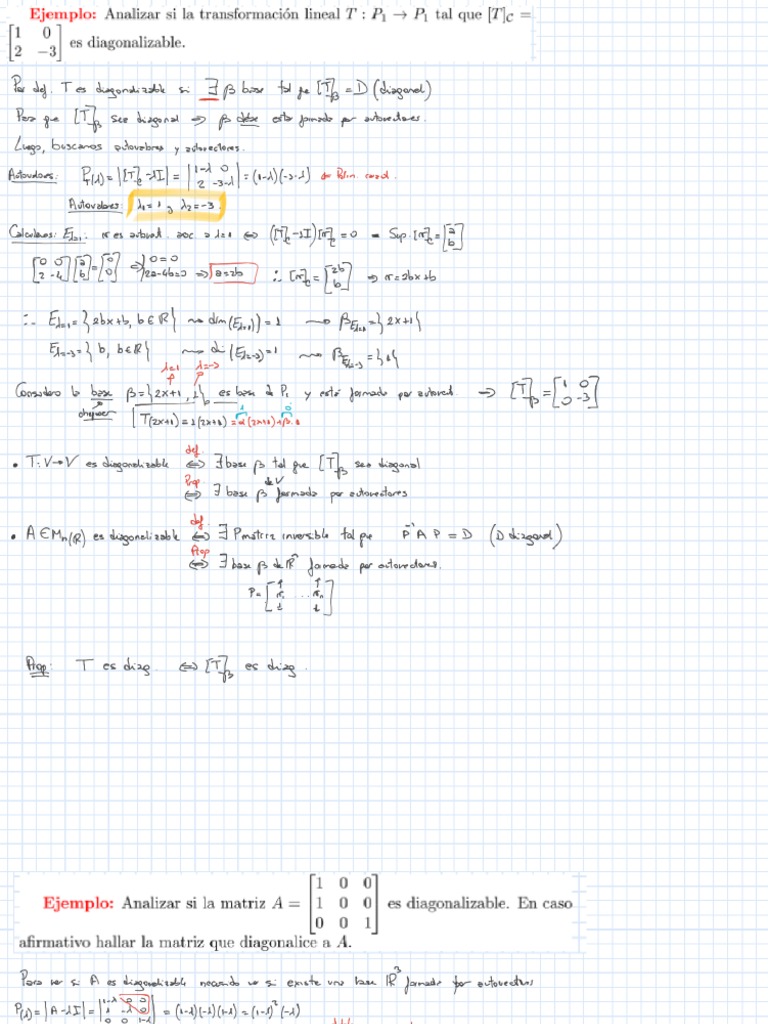 Ejemplo: Analizar si la transformación lineal T : P₁ → P₁ tal que [T]_C =
[1 0; 2 −3] es diagonalizable.
Por def. T es diagonalizable si ∃ β base tal que [T]_β = D (diagonal)
Para que [T]_β sea diagonal ⇒ β debe estar formada por autovectores.
Luego, buscamos autovalores y autovectores.
Autovalores: P_T(λ) = |[T]_C − λI| = |1−λ 0; 2 −3−λ| = (1−λ)(−3−λ)
Autovalores: λ₁ = 1 y λ₂ = −3.
Calculamos: E_λ=1: v es autovect. asoc a λ=1 ⇔ ([T]_C − 1I)[v]_C = 0 Sup. [v]_C = [a; b]
[0 0; 2 −4][a; b] = [0; 0] ⇒ {0=0; 2a−4b=0 ⇒ a=2b ∴ [v]_C = [2b; b] ⇒ v = 2bx+b
∴ E_λ=1 = {2bx+b, b∈ℝ} ⇝ dim(E_λ=1) = 1 ⇝ β_Eλ=1 = {2x+1}
E_λ=−3 = {b, b∈ℝ} ⇝ di(E_λ=−3) = 1 ⇝ β_Eλ=−3 = {1}
λ=1 λ=−3
Considero la base β = {2x+1, 1} es base de P₁ y está formada por autovect. ⇒ [T]_β = [1 0; 0 −3]
chequear T(2x+1) = 1(2x+1) = α(2x+1) + β·1
• T: V→V es diagonalizable ⇔ (def) ∃ base β tal que [T]_β sea diagonal
⇔ (Prop) ∃ base β de V formada por autovectores
• A ∈ M_n(ℝ) es diagonalizable ⇔ (def.) ∃ P matriz inversible tal que P⁻¹ A P = D (D diagonal)
⇔ (Prop) ∃ base β de ℝⁿ formada por autovectores.
P = [v₁ ... vₙ]
Prop: T es diag. ⇔ [T]_β es diag.
Ejemplo: Analizar si la matriz A = [1 0 0; 1 0 0; 0 0 1] es diagonalizable. En caso
afirmativo hallar la matriz que diagonalice a A.
Para ver si A es diagonalizable necesito ver si existe una base ℝ³ formada por autovectores
P(λ) = |A − λI| = |1−λ 0 0; 1 −λ 0; 0 0 1−λ| = (1−λ)(−λ)(1−λ) = (1−λ)²(−λ)